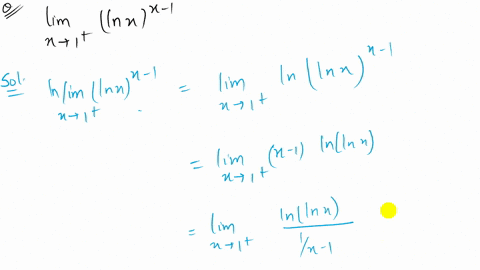 Q. lim x→1⁺ ((ln x)^(x-1)
Sol. ln lim x→1⁺ (ln x)^(x-1) = lim x→1⁺ ln(ln x)^(x-1)
= lim x→1⁺ (x-1) ln(ln x)
= lim x→1⁺ ln(ln x) / 1/x-1